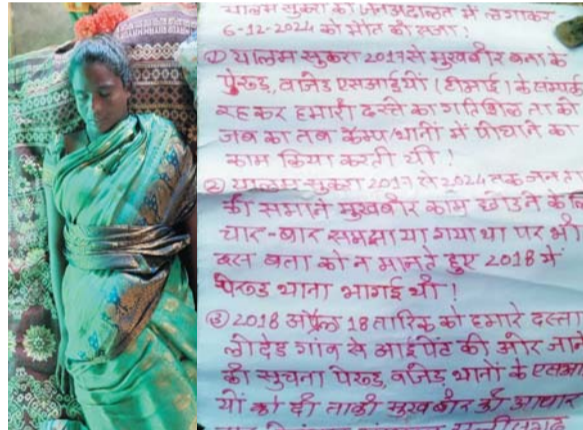 यालम सुकरा को जनअदालत में लगाकर
6-12-2024 को मौत की सजा!
① यालम सुकरा 2017 से मुखबीर बना के
पेरूड, वाजेड एसआईयों (टीमाई) के संपर्क
रह कर हमारी दस्ते का गतिविल ता को
जब का तब कॅम्प/थानों में पोचाने का
काम किया करती थी!
② यालम सुकरा 2017 से 2024 तक जन ता
की समाने मुखबीर काम छोडने के
चार-बार समझा या गया था पर भी
इस बता को न मानते हुए 2018 में
पेरूड थाना भागई थी!
③ 2018 अप्रैल 18 तारिक को हमारे दस्ता
लोदेड गांव से आईपेंट की ओर जाने
की सुचना पेरूड, वाजेड थानों के एसआ
यों को दी ताकी मुखबीर की आधार